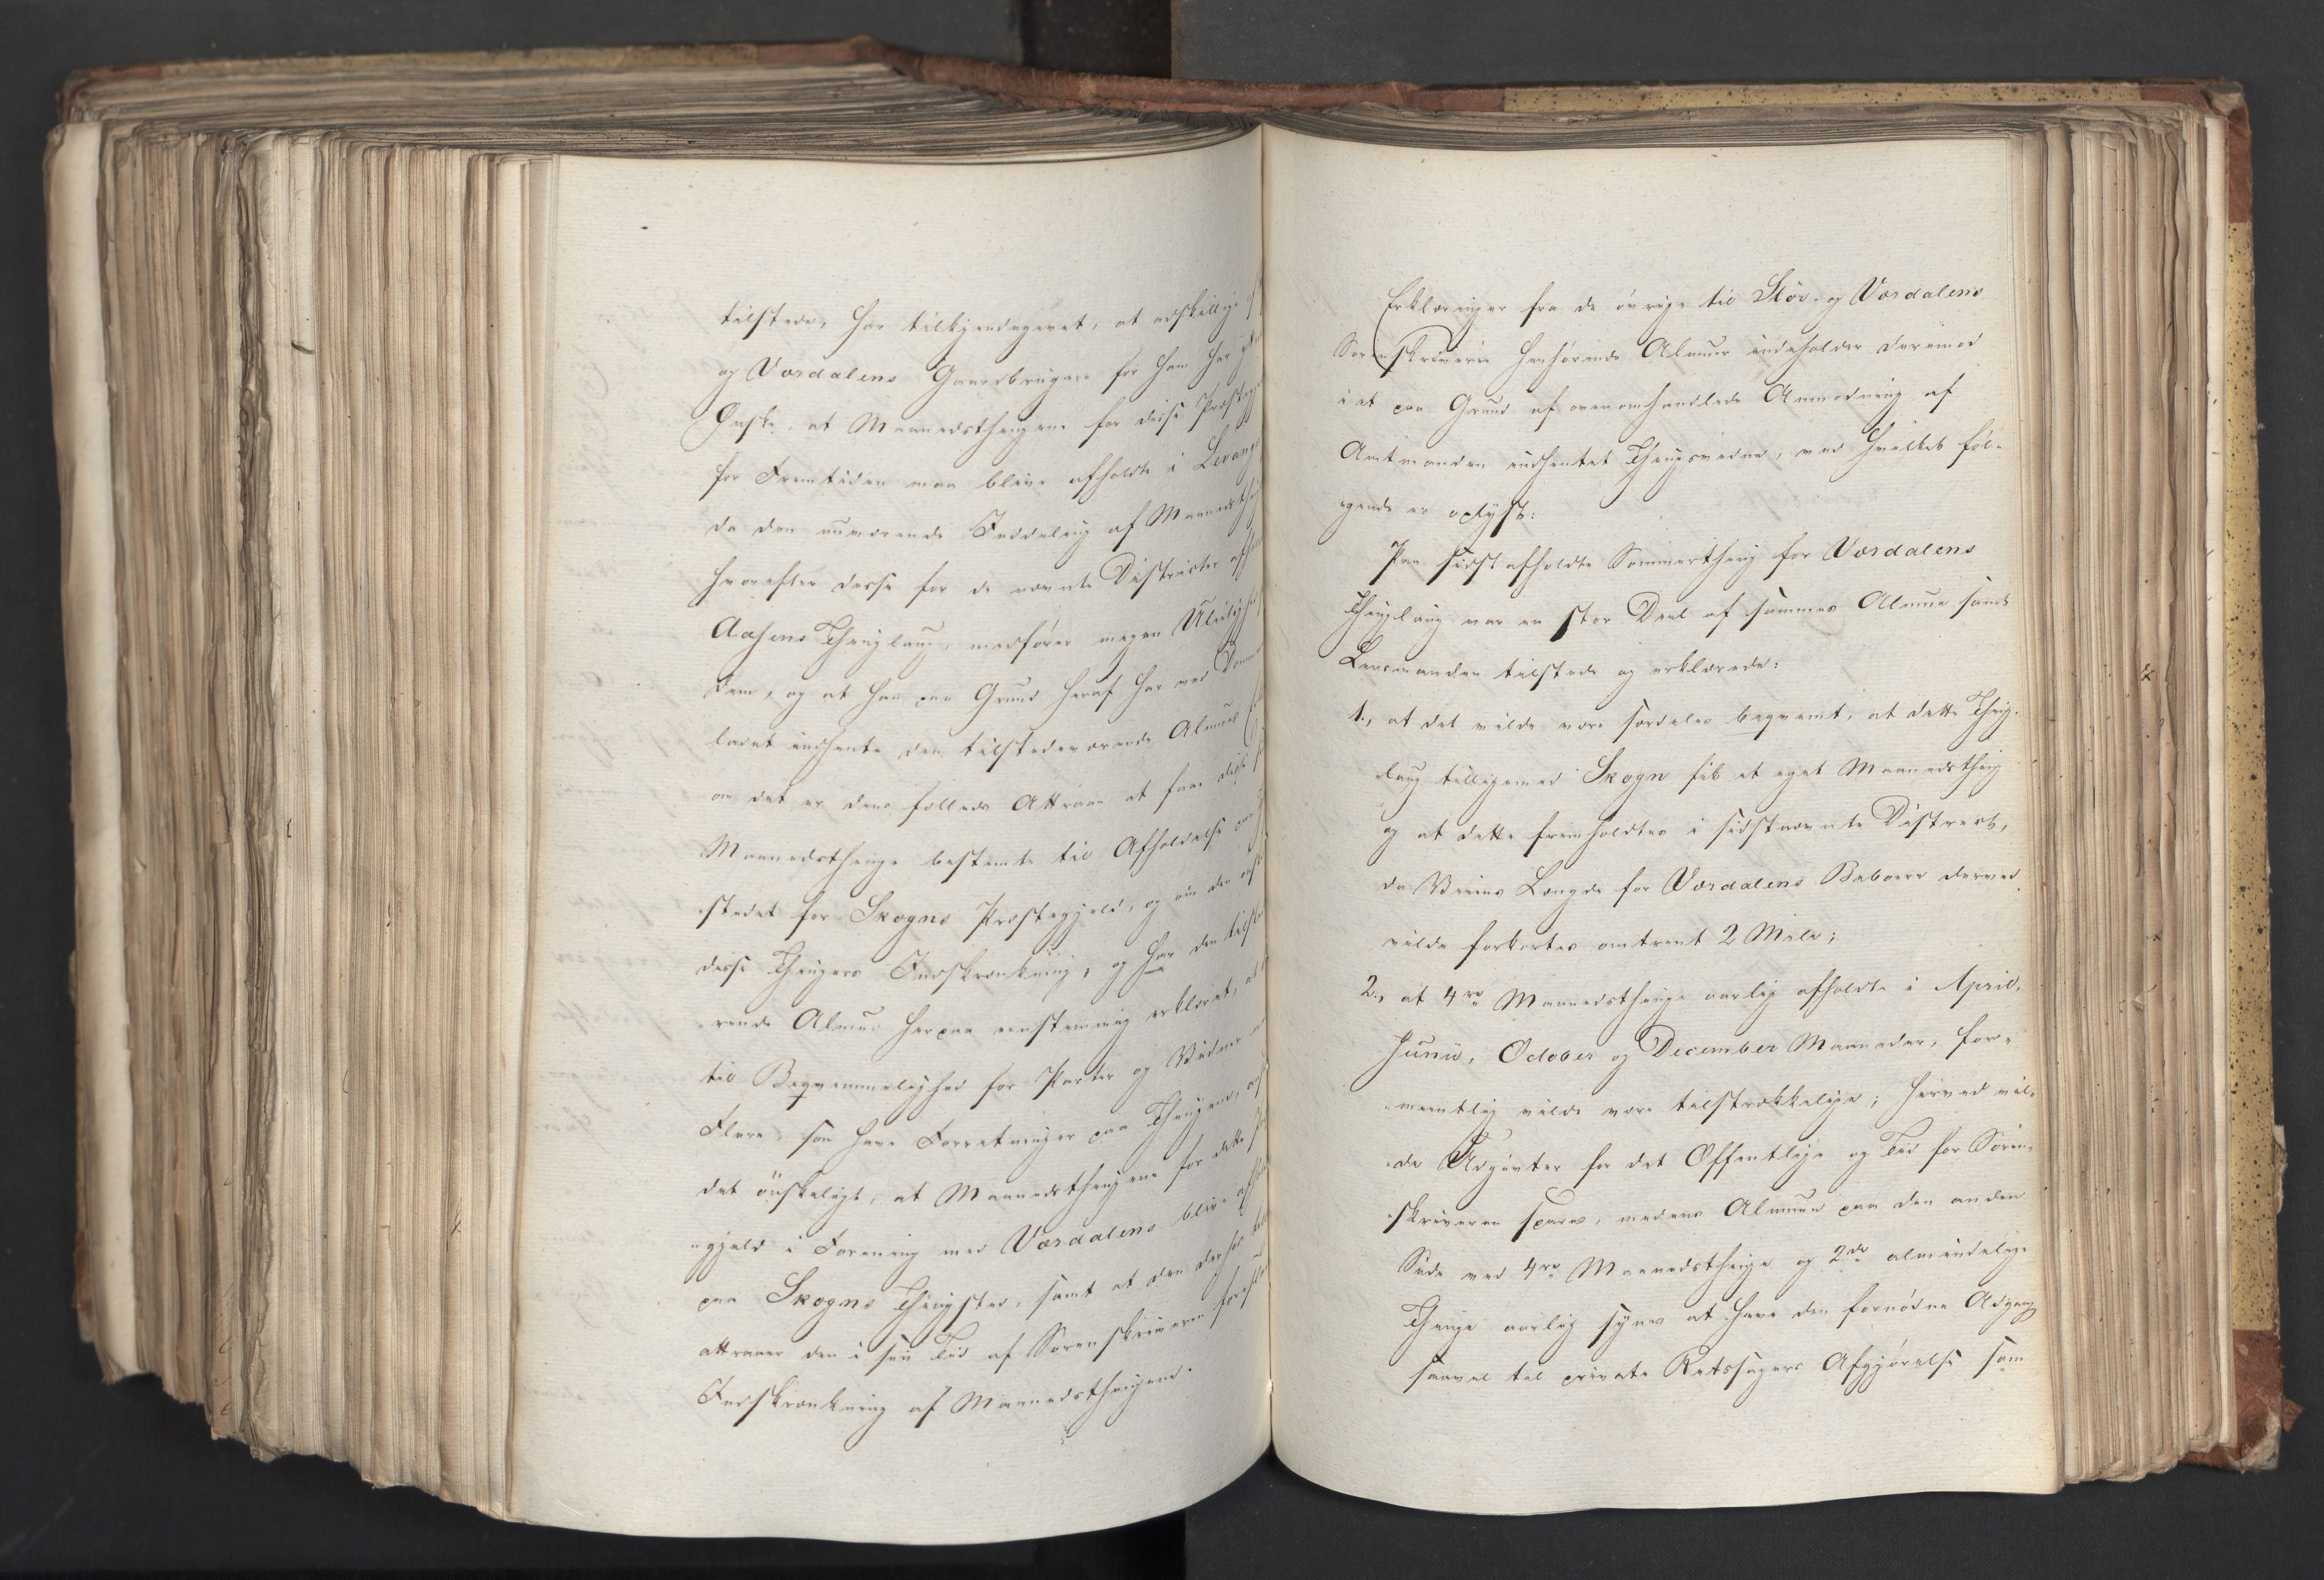 tilstede, har tilkjendegivet, at adskillige
og Værdalens Gaardbrugere for ham har
Ønske, at Maanedsthingene for disse
for Fremtiden maa blive afholdte i Levang
da den nuværende Inddeling af
hvorefter disse for de nævnte Districter
Aasens Thinglaug, medfører megen
dem, og at han paa Grund heraf har ved
ladet indhente den tilstedeværende Almues
om det er dens fælleds Attraae at faae disse
Maanedsthinge bestemte til Afholdelse
stedet for Skogns Præstegjeld, og om den
disse Thinges Indskrænkning, og har den
rende Almue herpaa eenstemmig erklæret,
til Beqvemmelighed for Parter og Vidner
Flere, som have Forretninger paa Thingene,
det ønskeligt, at Maanedsthingene for dette
-gjeld i Forening med Værdalens blive
paa Skogns Thingsted, samt at den derhos
attraaer den i sin Tid af Sorenskriveren
Indskrænkning af Maanedsthingene.
Erklæringer fra de øvrige til Stør- og Værdalens
Sorenskriverie henhørende Almuer indeholder derimod
i et paa Grund af ovenomhandlede Anmodning af
Amtmanden indhentet Thingsvidne, ved hvilket føl-
gende er oplyst:
Paa sidst afholdte Sommerthing for Værdalens
Thinglaug var en stor Deel af sammes Almue samt
Lensmanden tilstede og erklærede:
1., at det vilde være særdeles beqvemt, at dette Thing-
laug tilligemed Skogn fik et eget Maanedsthing
og at dette fremholdtes i sidstnævnte District,
da Veiens Længde for Værdalens Beboere derved
vilde forkortes omtrent 2 Mile;
2., at 4re Maanedsthinge aarlig afholdte i April,
Junii, October og December Maaneder, for-
-meentlig vilde være tilstrækkelige; herved vil-
-de Udgivter for det Offentlige og Tid for Soren-
-skriveren spares, medens Almuen paa den anden
Side ved 4re Maanedsthinge og 2de almindelige
Thinge aarlig synes at have den fornødne Adgang
saavel til private Retssagers Afgjørelse som